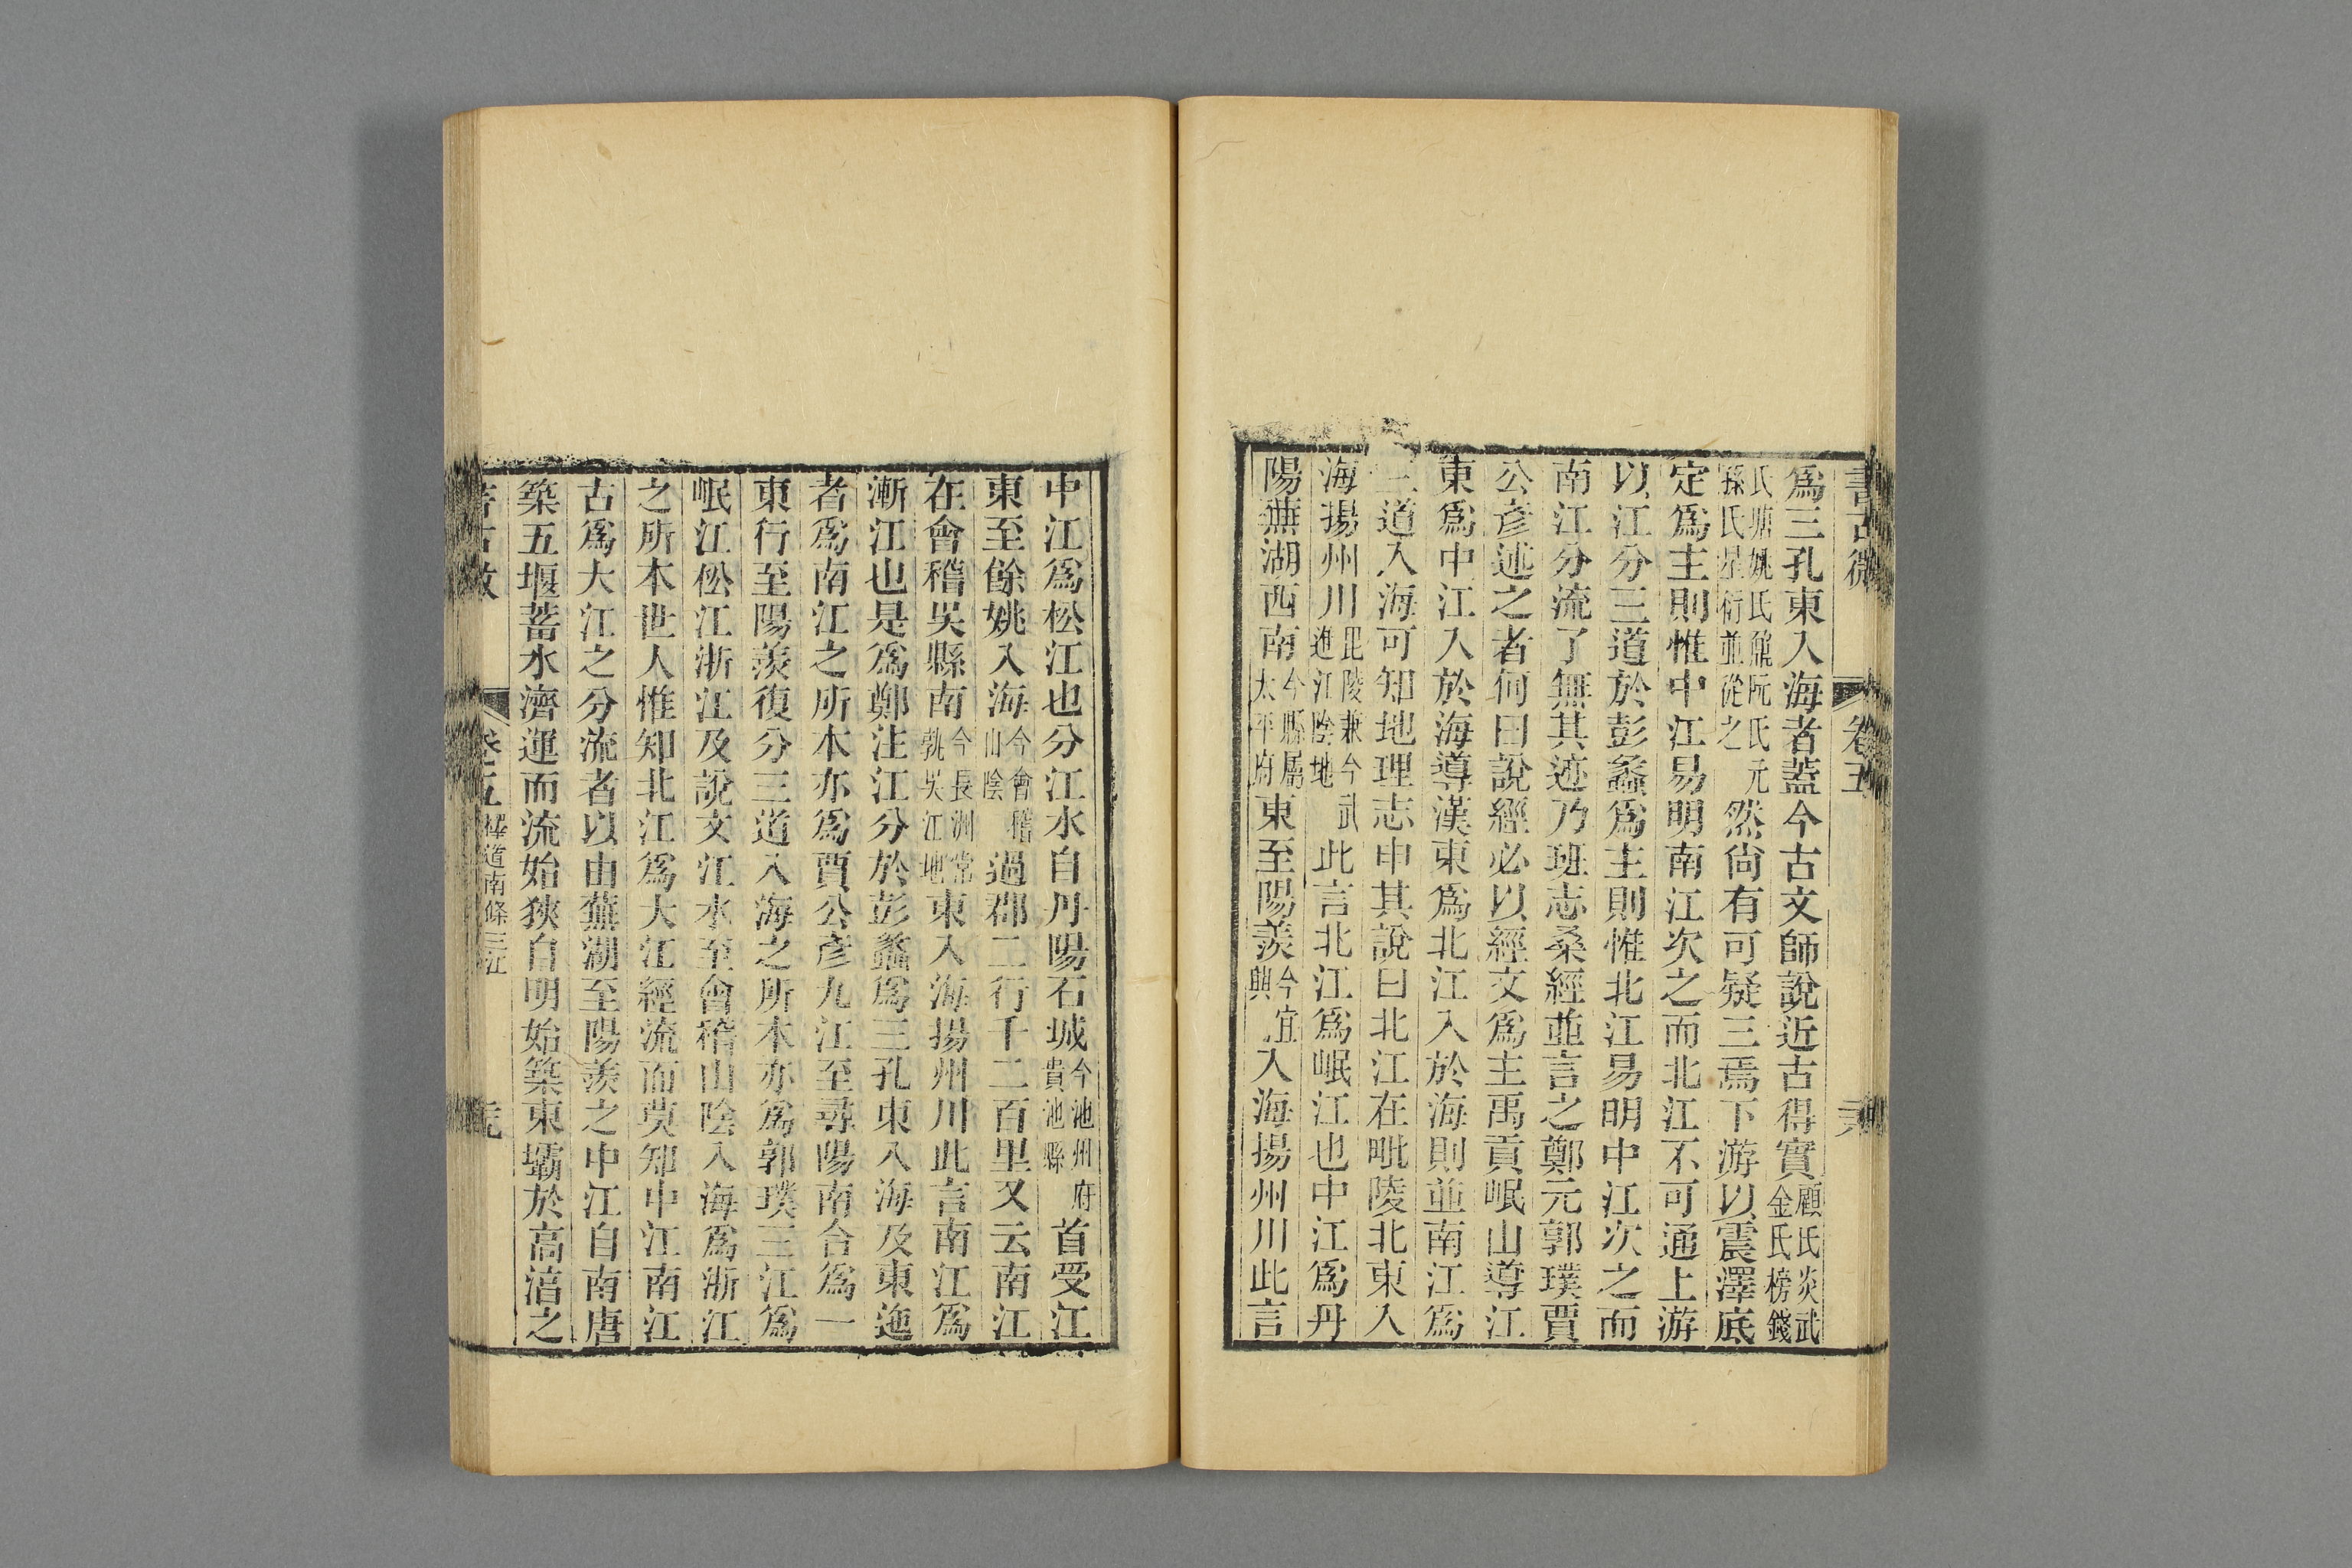 書古微　卷五
爲三孔東入海者蓋今古文師說近古得實顧氏炎武金氏榜錢
氏塘姚氏鼐阮氏元孫氏星衍並從之然尚有可疑三焉下游以震澤底
定爲主則惟中江易明南江次之而北江不可通上游
以江分三道於彭蠡爲主則惟北江易明中江次之而
南江分流了無其迹乃班志桑經並言之鄭元郭璞賈
公彥述之者何曰說經必以經文爲主禹貢岷山導江
東爲中江入於海導漢東爲北江入於海則並南江爲
三道入海可知地理志申其說曰北江在毗陵北東入
海揚州川毘陵兼今武進江陰地此言北江爲岷江也中江爲丹
陽蕪湖西南今縣屬太平府東至陽羨今宜興入海揚州川此言
中江爲松江也分江水自丹陽石城今池州府貴池縣首受江
東至餘姚入海今會稽山陰過郡二行千二百里又云南江
在會稽吳縣南今長洲常孰吳江地東入海揚州川此言南江爲
漸江也是爲鄭注江分於彭蠡爲三孔東入海及東迆
者爲南江之所本亦爲賈公彥九江至尋陽南合爲一
東行至陽羨復分三道入海之所本亦爲郭璞三江爲
岷江松江浙江及說文江水至會稽山陰入海爲浙江
之所本世人惟知北江爲大江經流而莫知中江南江
古爲大江之分流者以由蕪湖至陽羨之中江自南唐
築五堰蓄水濟運而流始狹自明始築東壩於高湻之
卷五　釋道南條三江